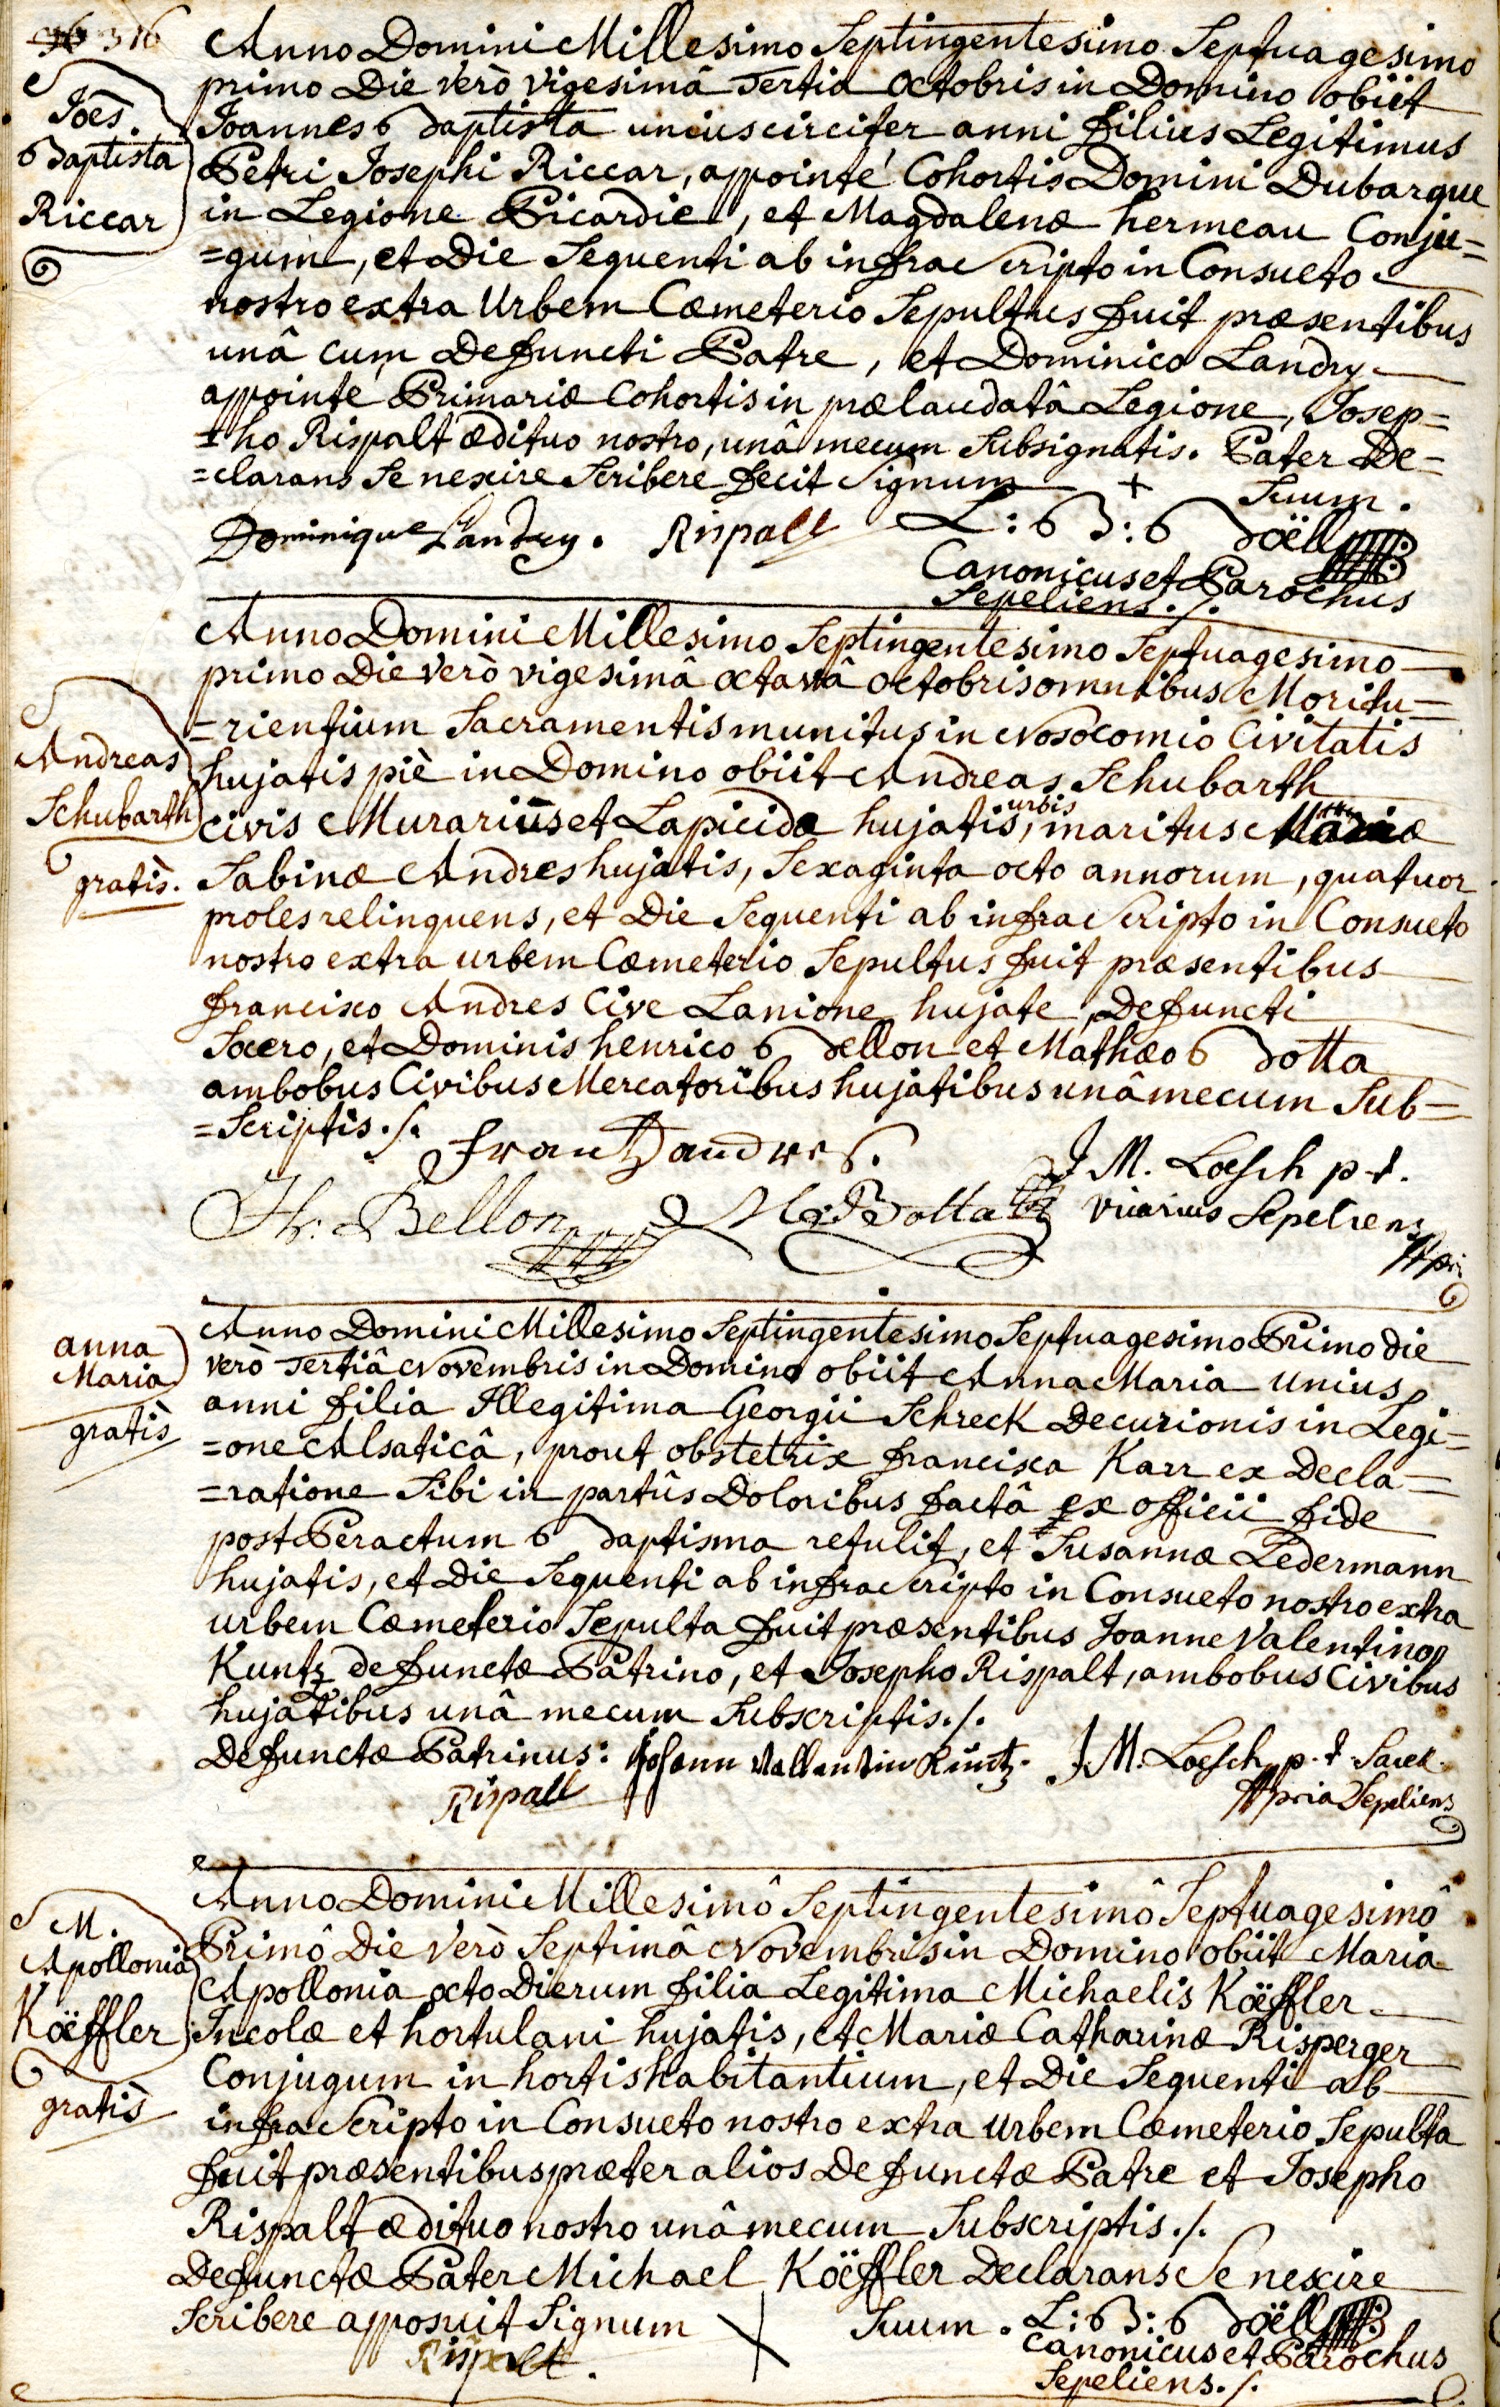 316
Joēs.
Baptista
Riccar
Anno Domini Millesimo Septingentesimo Septuagesimo
primo Die verò vigesimâ Tertia Octobris in Domino obiit
Joannes Baptista unius circiter anni filius Legitimus
Petri Josephi Riccar, appointé Cohortis Domini Dubarque
in Legione Picardie, et Magdalenæ hermeau Conju=
=gum, et Die Sequenti ab infra Scripto in Consueto
nostro extra Urbem Cæmeterio Sepultus fuit præsentibus
unâ cum Defuncti Patre, et Dominico Landry
appointé Primariæ Cohortis in prælaudatâ Legione, Josep=
=ho Rispalt ædituo nostro, unâ mecum Subsignatis. Pater De=
=clarans Se nescire Scribere fecit Signum + Suum.
Dominique Landry. Rispalt L: B: Boëll
Canonicus et Parochus
Sepeliens ./.
Andreas
Schubarth
gratis.
Anno Domini Millesimo Septingentesimo Septuagesimo
primo Die verò vigesimâ octavâ Octobris omnibus Moritu=
=rientium Sacramentis munitus in Nosocomio Civitatis
hujatis piè in Domino obiit Andreas Schubarth
civis Murarius et Lapicida hujatis urbis, maritus Mariæ
Sabinæ Andres hujatis, Sexaginta octo annorum, quatuor
proles relinquens, et Die Sequenti ab infra Scripto in Consueto
nostro extra urbem Cæmeterio Sepultus fuit præsentibus
francisco Andres Cive Lanione hujate, Defuncti
Socero, et Dominis henrico Bellon et Mathæo Botta
ambobus Civibus Mercatoribus hujatibus unâ mecum Sub=
=Scriptis ./.
Frantz andres. J M. Loesch p.t.
Hr: Bellon M: Botta vicarius Sepeliens
mppria
anna
Maria
gratis
Anno Domini Millesimo Septingentesimo Septuagesimo Primo die
verò Tertiâ Novembris in Domino obiit Anna Maria unius
anni filia Illegitima Georgii Schreck Decurionis in Legi=
=one Alsaticâ, prout obstetrix francisca Karr ex Decla=
=ratione Sibi in partûs Doloribus factâ ex officii fide
post Peractum Baptisma retulit, et Susannæ Ledermann
hujatis, et Die Sequenti ab infra Scripto in Consueto nostro extra
urbem Cæmeterio Sepulta fuit præsentibus Joanne Valentino
Kuntz defunctæ Patrino, et Josepho Rispalt, ambobus Civibus
hujatibus unâ mecum Subscriptis ./.
Defunctæ Patrinus: Johann Vallentin Kuntz. J. M. Loesch p.t. Sacell.
Rispalt mppria Sepeliens
M.
Apollonia
Köeffler
gratis
Anno Domini Millesimô Septingentesimô Septuagesimô
Primô Die verò Septimâ Novembris in Domino obiit Maria
Apollonia octo Dierum filia Legitima Michaelis Köeffler
Incolæ et hortulani hujatis, et Mariæ Catharinæ Risperger
Conjugum in hortis habitantium, et Die Sequenti ab
infra Scripto in Consueto nostro extra Urbem Cæmeterio Sepulta
fuit præsentibus præter alios Defunctæ Patre et Josepho
Rispalt ædituo nostro unâ mecum Subscriptis ./.
Defunctæ Pater Michael Köeffler Declarans Se nescire
Scribere apposuit Signum X Suum. L: B: Boëll
Rispalt. Canonicus et Parochus
Sepeliens ./.